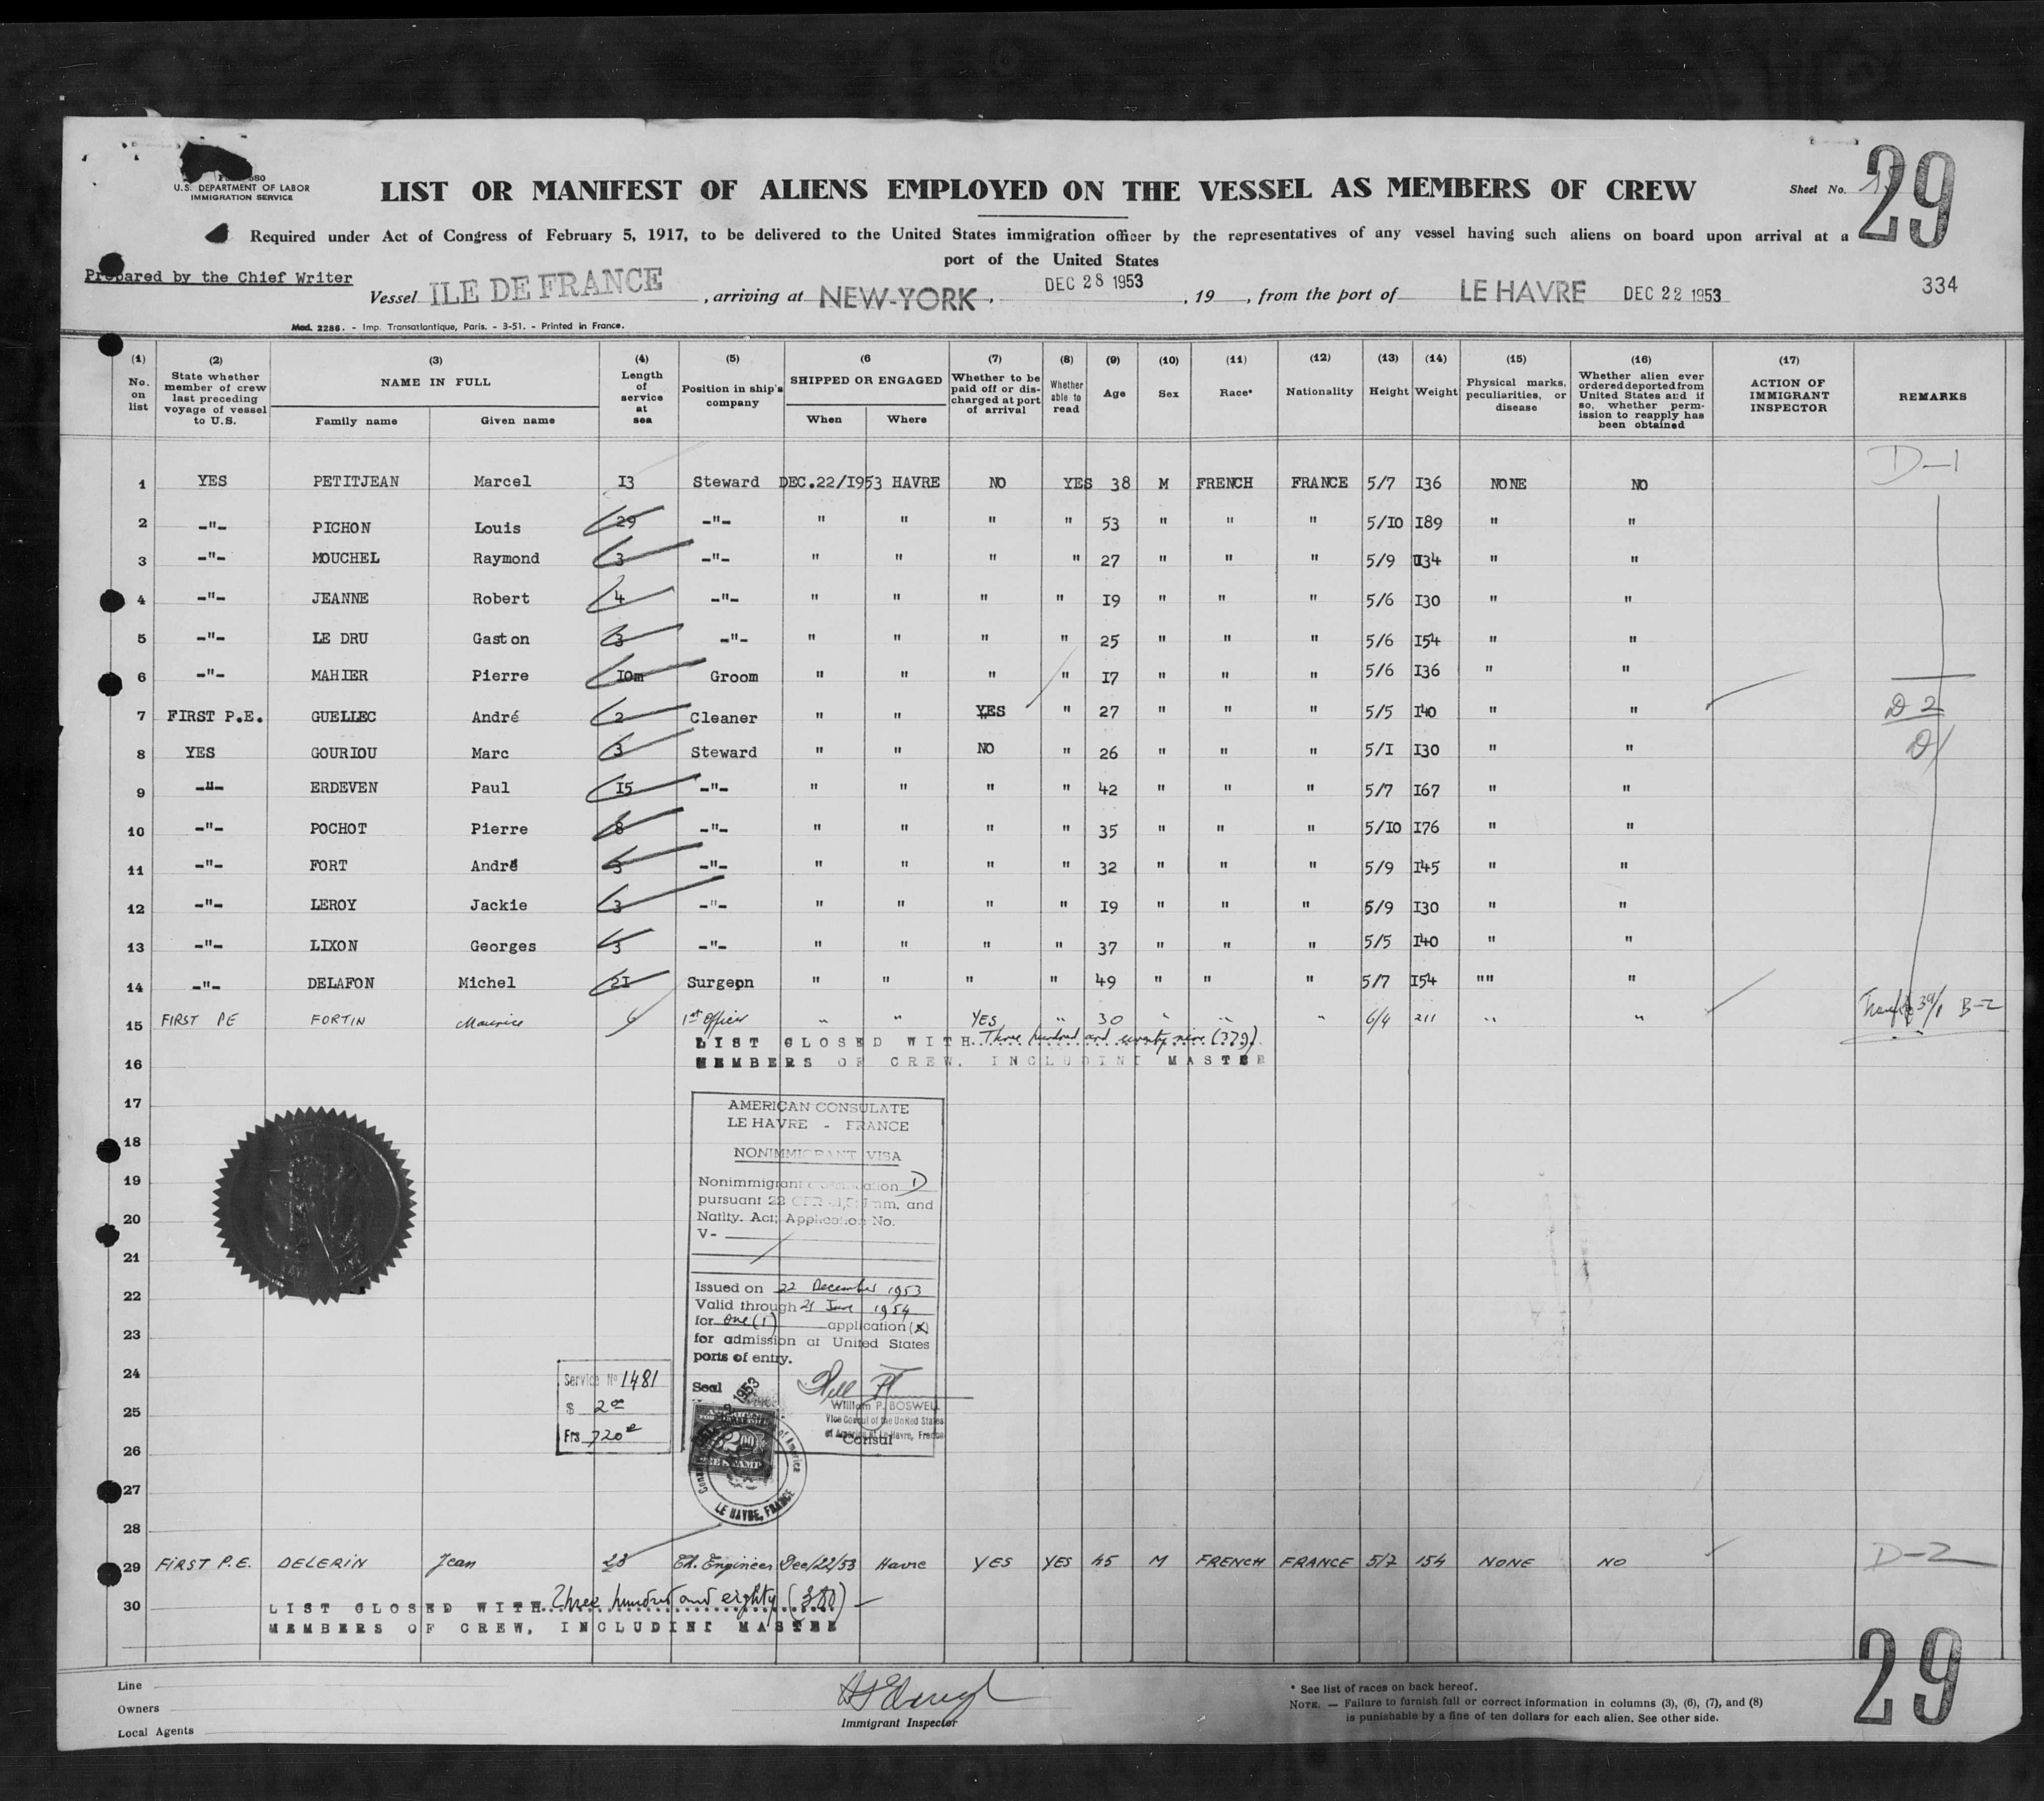 U.S. DEPARTMENT OF LABOR
IMMIGRATION SERVICE
LIST OR MANIFEST OF ALIENS EMPLOYED ON THE VESSEL AS MEMBERS OF CREW
Sheet No.
29
Required under Act of Congress of February 5, 1917, to be delivered to the United States immigration officer by the representatives of any vessel having such aliens on board upon arrival at a
port of the United States
Prepared by the Chief Writer
Vessel ILE DE FRANCE, arriving at NEW-YORK, DEC 28 1953, 19 , from the port of LE HAVRE DEC 22 1953
334
Mod. 2286. - Imp. Transatlantique, Paris. - 3-51. - Printed in France.
(1) No. on list (2) State whether member of crew last preceding voyage of vessel to U.S. (3) NAME IN FULL Family name Given name (4) Length of service at sea (5) Position in ship's company (6 SHIPPED OR ENGAGED When Where (7) Whether to be paid off or discharged at port of arrival (8) Whether able to read (9) Age (10) Sex (11) Race* (12) Nationality (13) Height (14) Weight (15) Physical marks, peculiarities, or disease (16) Whether alien ever ordered deported from United States and if so, whether permission to reapply has been obtained (17) ACTION OF IMMIGRANT INSPECTOR REMARKS
D-1
1 YES PETITJEAN Marcel I3 Steward DEC.22/I953 HAVRE NO YES 38 M FRENCH FRANCE 5/7 I36 NONE NO
2 -"- PICHON Louis 29 -"- " " " " 53 " " " 5/I0 I89 " "
3 -"- MOUCHEL Raymond 3 -"- " " " " 27 " " " 5/9 I34 " "
4 -"- JEANNE Robert 4 -"- " " " " I9 " " " 5/6 I30 " "
5 -"- LE DRU Gaston 3 -"- " " " " 25 " " " 5/6 I54 " "
6 -"- MAHIER Pierre I0m Groom " " " " I7 " " " 5/6 I36 " "
7 FIRST P.E. GUELLEC André 2 Cleaner " " YES " 27 " " " 5/5 I40 " " D 2
8 YES GOURIOU Marc 3 Steward " " NO " 26 " " " 5/I I30 " " D/
9 -"- ERDEVEN Paul I5 -"- " " " " 42 " " " 5/7 I67 " "
10 -"- POCHOT Pierre 8 -"- " " " " 35 " " " 5/I0 I76 " "
11 -"- FORT André 3 -"- " " " " 32 " " " 5/9 I45 " "
12 -"- LEROY Jackie 3 -"- " " " " I9 " " " 5/9 I30 " "
13 -"- LIXON Georges 3 -"- " " " " 37 " " " 5/5 I40 " "
14 -"- DELAFON Michel 2I Surgeon " " " " 49 " " " 5/7 I54 "" "
15 FIRST PE FORTIN Maurice 6 1st Officer " " YES " 30 " " " 6/4 211 " " B-2
LIST CLOSED WITH Three hundred and seventy nine (379)
16 MEMBERS OF CREW, INCLUDINI MASTER
17
18
19
20
21
22
23
24
25
26
27
28
AMERICAN CONSULATE
LE HAVRE - FRANCE
NONIMMIGRANT VISA
Nonimmigrant classification D
pursuant 22 CFR 41, Imm. and
Natlty. Act; Application No.
V-
Issued on 22 December 1953
Valid through 21 June 1954
for One (1) application (x)
for admission at United States
ports of entry.
Seal
William P. BOSWELL
Vice Consul of the United States
of America at Le Havre, France
Consul
Service No 1481
$ 2.00
Frs 720
$2.00
FEE STAMP
LE HAVRE, FRANCE
29 FIRST P.E. DELERIN Jean 28 Ch. Engineer Dec/22/53 Havre YES YES 45 M FRENCH FRANCE 5/7 154 NONE NO D-2
30 LIST CLOSED WITH Three hundred and eighty (380)
MEMBERS OF CREW, INCLUDINI MASTER
29
Line
Owners
Local Agents
Immigrant Inspector
* See list of races on back hereof.
NOTE. — Failure to furnish full or correct information in columns (3), (6), (7), and (8)
is punishable by a fine of ten dollars for each alien. See other side.